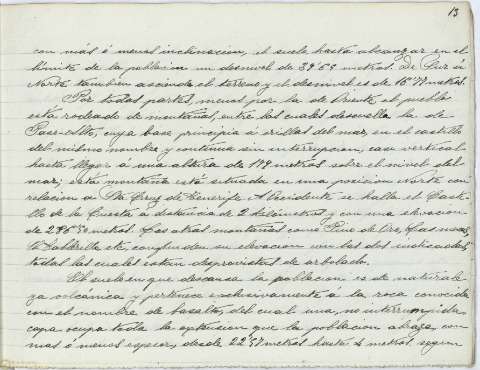 13
con más ó menos inclinacion, el suelo hasta alcanzar en el
límite de la poblacion un desnivel de metros. De Sur á
Norte tambien asciende el terreno y el desnivel es de metros.
Por todas partes, menos por la de Oriente el pueblo
está rodeado de montañas, entre las cuales descuella la de
Paso-Alto, cuya base principia á orillas del mar, en el castillo
del mismo nombre y continua sin interrupcion, casi vertical
hasta llegar á una altura de metros sobre el nivel del
mar; esta montaña está situada en una posicion Norte con
relacion a Sta Cruz de Tenerife. A Occidente se halla el
de la Cuesta á distancia de 2 kilómetros y con una elevacion
de metros. Las otras montañas como Pino de Oro,
etc, confunden su elevacion con las dos indicadas,
todas las cuales estan desprovistas de arbolado.
El suelo en que descansa la poblacion es de natirale-
za volcánica y pertenece exclusivamente á la roca conocida
con el nombre de basalto, del cual una, no interrumpida,
capa ocupa toda la extension que la poblacion abraza, con
mas ó menos espesor, desde metros hasta metros segun